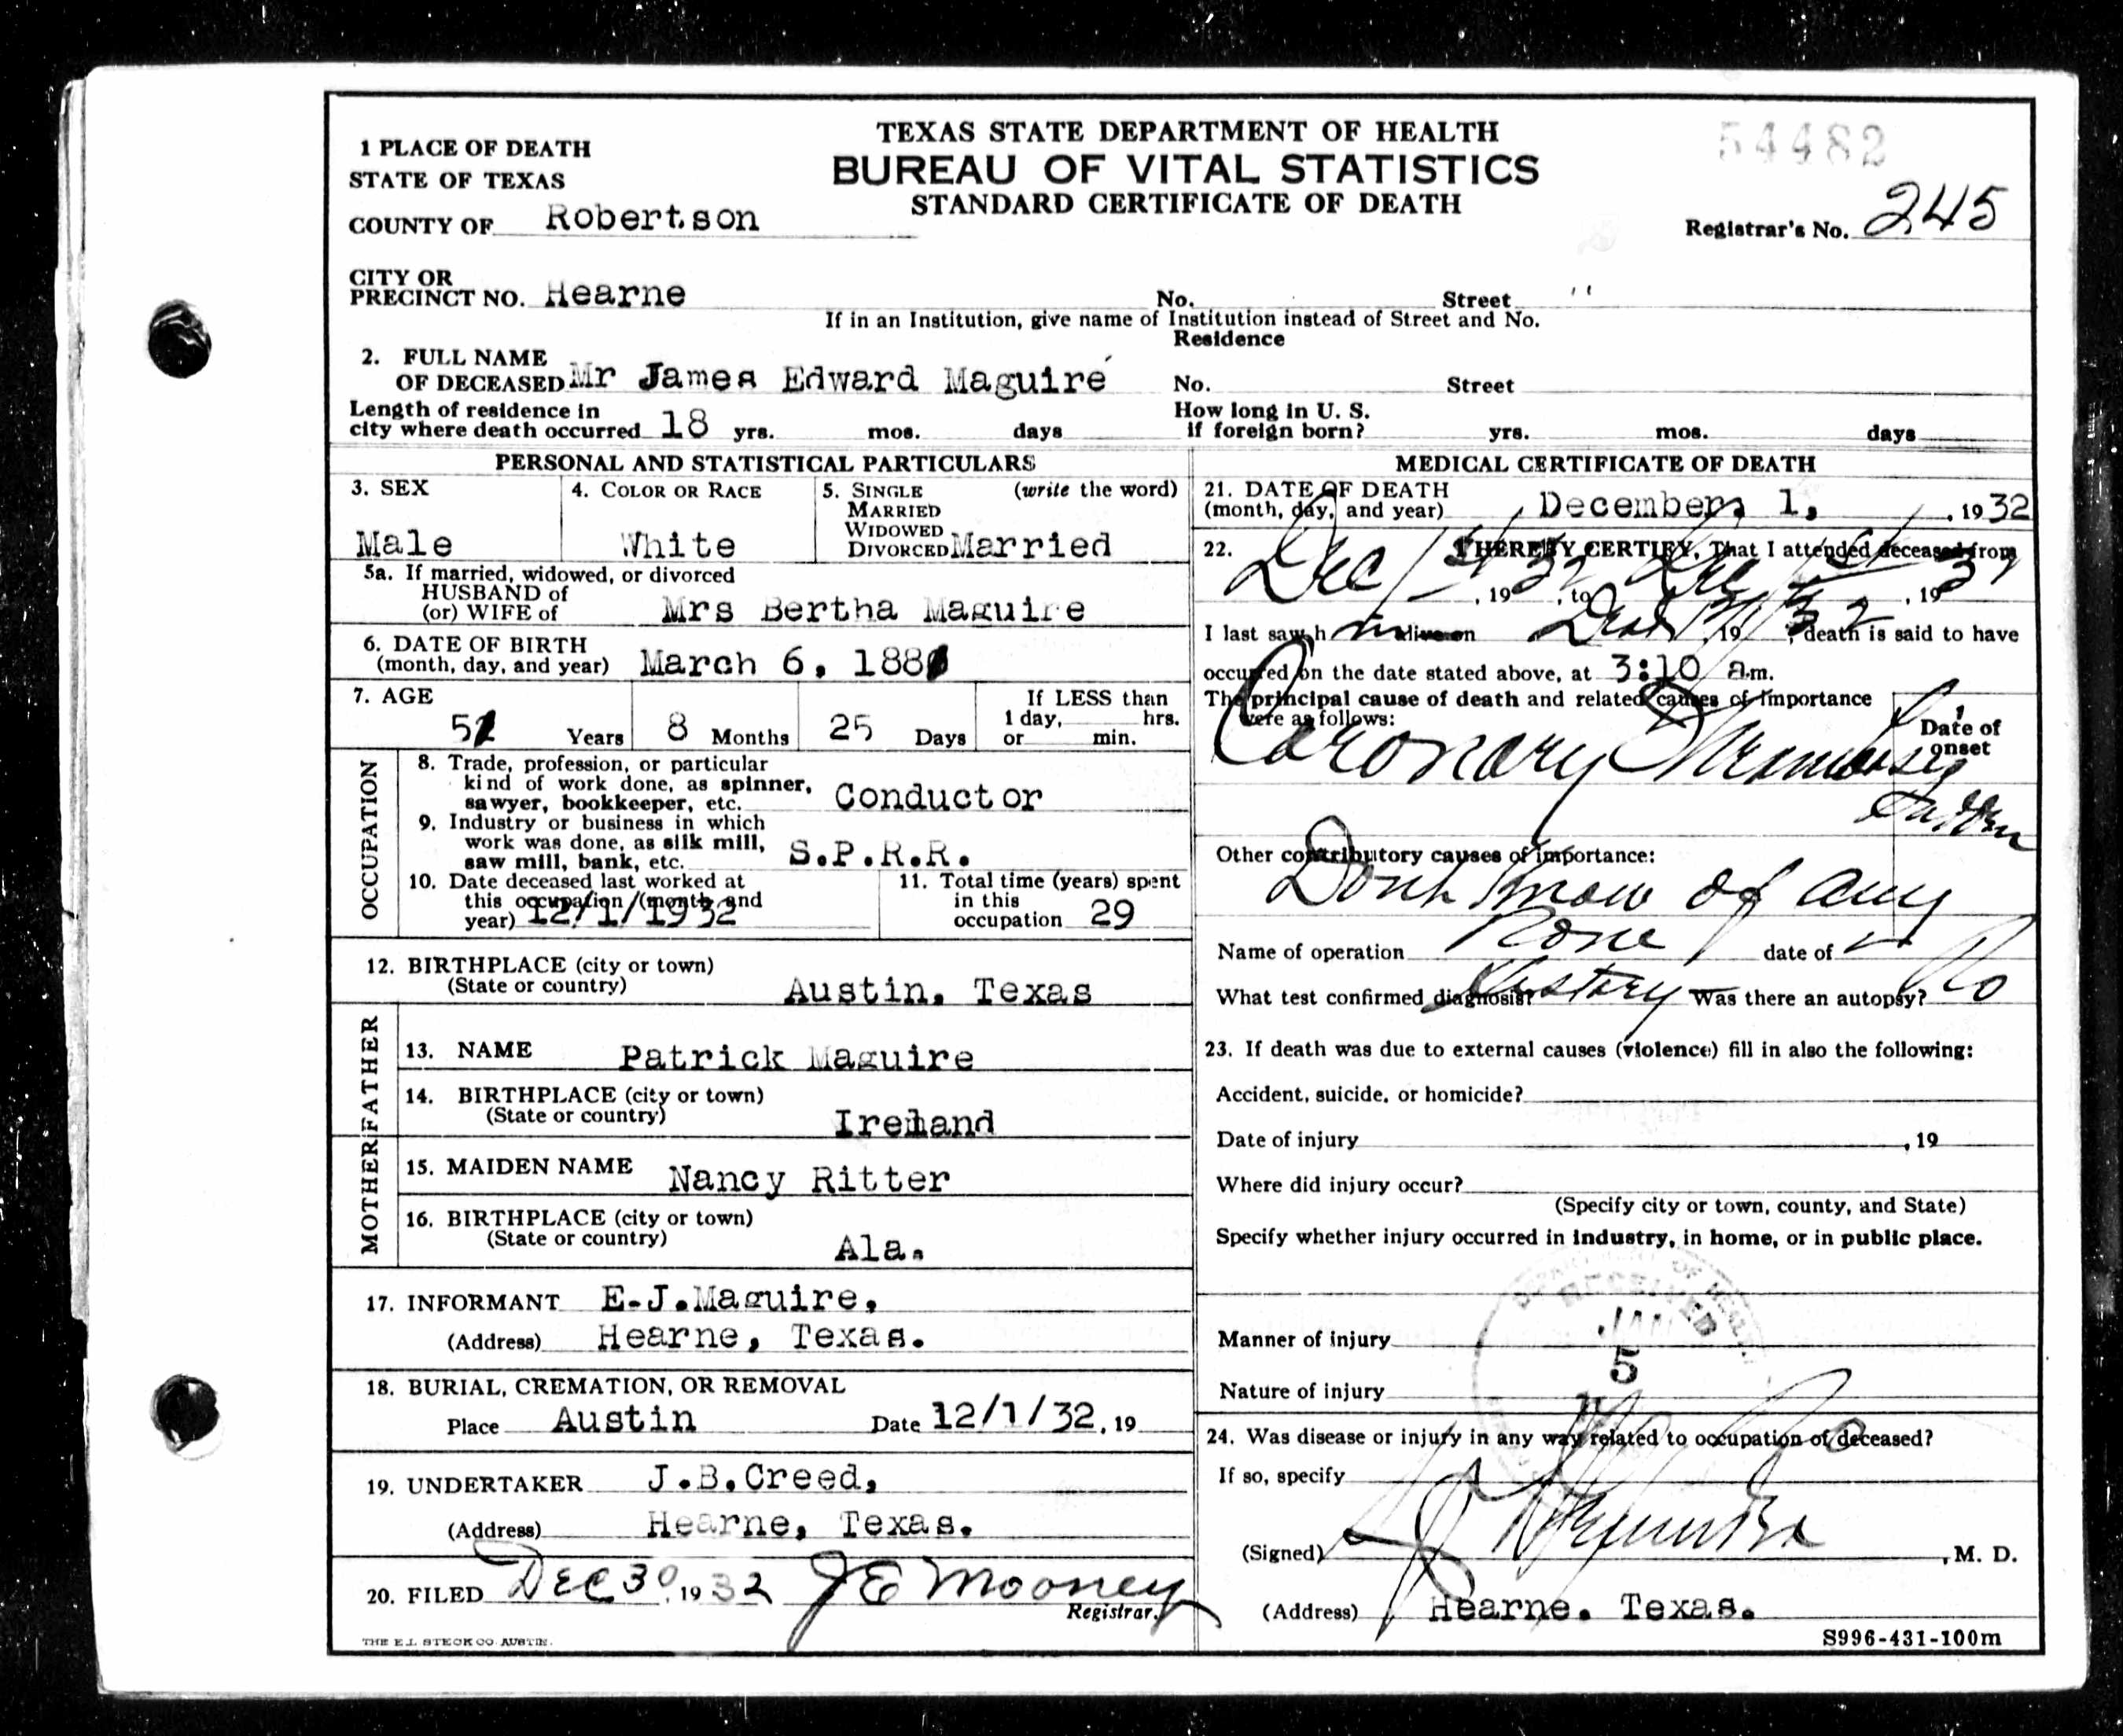 TEXAS STATE DEPARTMENT OF HEALTH
BUREAU OF VITAL STATISTICS
STANDARD CERTIFICATE OF DEATH
54482
Registrar's No. 245
1 PLACE OF DEATH
STATE OF TEXAS
COUNTY OF Robertson
CITY OR
PRECINCT NO. Hearne No. Street "
If in an Institution, give name of Institution instead of Street and No.
Residence
2. FULL NAME
OF DECEASED Mr James Edward Maguire No. Street
Length of residence in
city where death occurred 18 yrs. mos. days
How long in U. S.
if foreign born? yrs. mos. days
PERSONAL AND STATISTICAL PARTICULARS
3. SEX
Male
4. COLOR OR RACE
White
5. SINGLE (write the word)
MARRIED
WIDOWED
DIVORCED Married
5a. If married, widowed, or divorced
HUSBAND of
(or) WIFE of Mrs Bertha Maguire
6. DATE OF BIRTH
(month, day, and year) March 6, 188
7. AGE
5 Years 8 Months 25 Days
If LESS than
1 day, hrs.
or min.
OCCUPATION
8. Trade, profession, or particular
kind of work done, as spinner,
sawyer, bookkeeper, etc. Conductor
9. Industry or business in which
work was done, as silk mill,
saw mill, bank, etc. S.P.R.R.
10. Date deceased last worked at
this occupation (month and
year) 12/1/1932
11. Total time (years) spent
in this
occupation 29
12. BIRTHPLACE (city or town)
(State or country) Austin, Texas
FATHER
13. NAME Patrick Maguire
14. BIRTHPLACE (city or town)
(State or country) Ireland
MOTHER
15. MAIDEN NAME Nancy Ritter
16. BIRTHPLACE (city or town)
(State or country) Ala.
17. INFORMANT E.J.Maguire,
(Address) Hearne, Texas.
18. BURIAL, CREMATION, OR REMOVAL
Place Austin Date 12/1/32, 19
19. UNDERTAKER J.B.Creed,
(Address) Hearne, Texas.
20. FILED Dec 30, 1932 J E Mooney
Registrar.
THE E.L. STECK CO. AUSTIN.
MEDICAL CERTIFICATE OF DEATH
21. DATE OF DEATH
(month, day, and year) December 1, , 1932
22. I HEREBY CERTIFY, That I attended deceased from
Dec 1st, 1932, to Dec 1st, 193
I last saw him alive on Dead 12/1, 1932, death is said to have
occurred on the date stated above, at 3:10 a.m.
The principal cause of death and related causes of importance
were as follows:
Date of
onset
Coronary
Sudden
Other contributory causes of importance:
Dont know of any
Name of operation None date of
What test confirmed diagnosis? History Was there an autopsy? No
23. If death was due to external causes (violence) fill in also the following:
Accident, suicide, or homicide?
Date of injury , 19
Where did injury occur?
(Specify city or town, county, and State)
Specify whether injury occurred in industry, in home, or in public place.
RECEIVED
JAN
5
Manner of injury
Nature of injury
24. Was disease or injury in any way related to occupation of deceased? No
If so, specify
(Signed) , M. D.
(Address) Hearne. Texas.
S996-431-100m